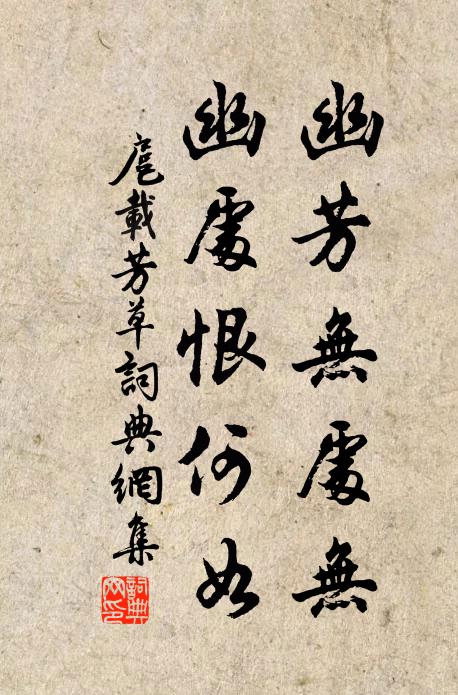 幽芳無處無
幽處恨何如
扈載芳草詞典網集
詞典網印